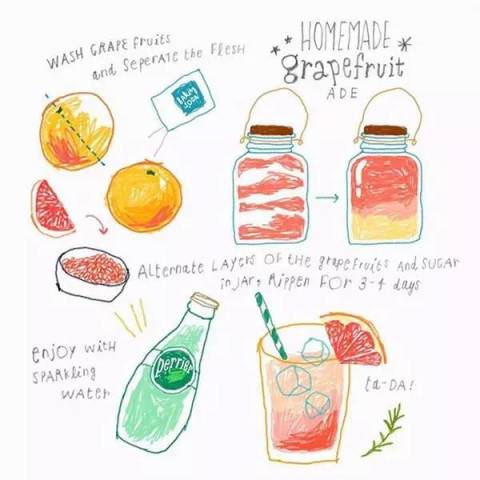 WASH GRAPE fruits
and SEPERATE the FLESH
HOMEMADE
grapefruit
ADE
baking
soda
Alternate LAYERS OF the grapefruits AND SUGAR
in JAR, Rippen FOR 3-4 days
enjoy with
SPARkling
water
perrier
ta-DA!